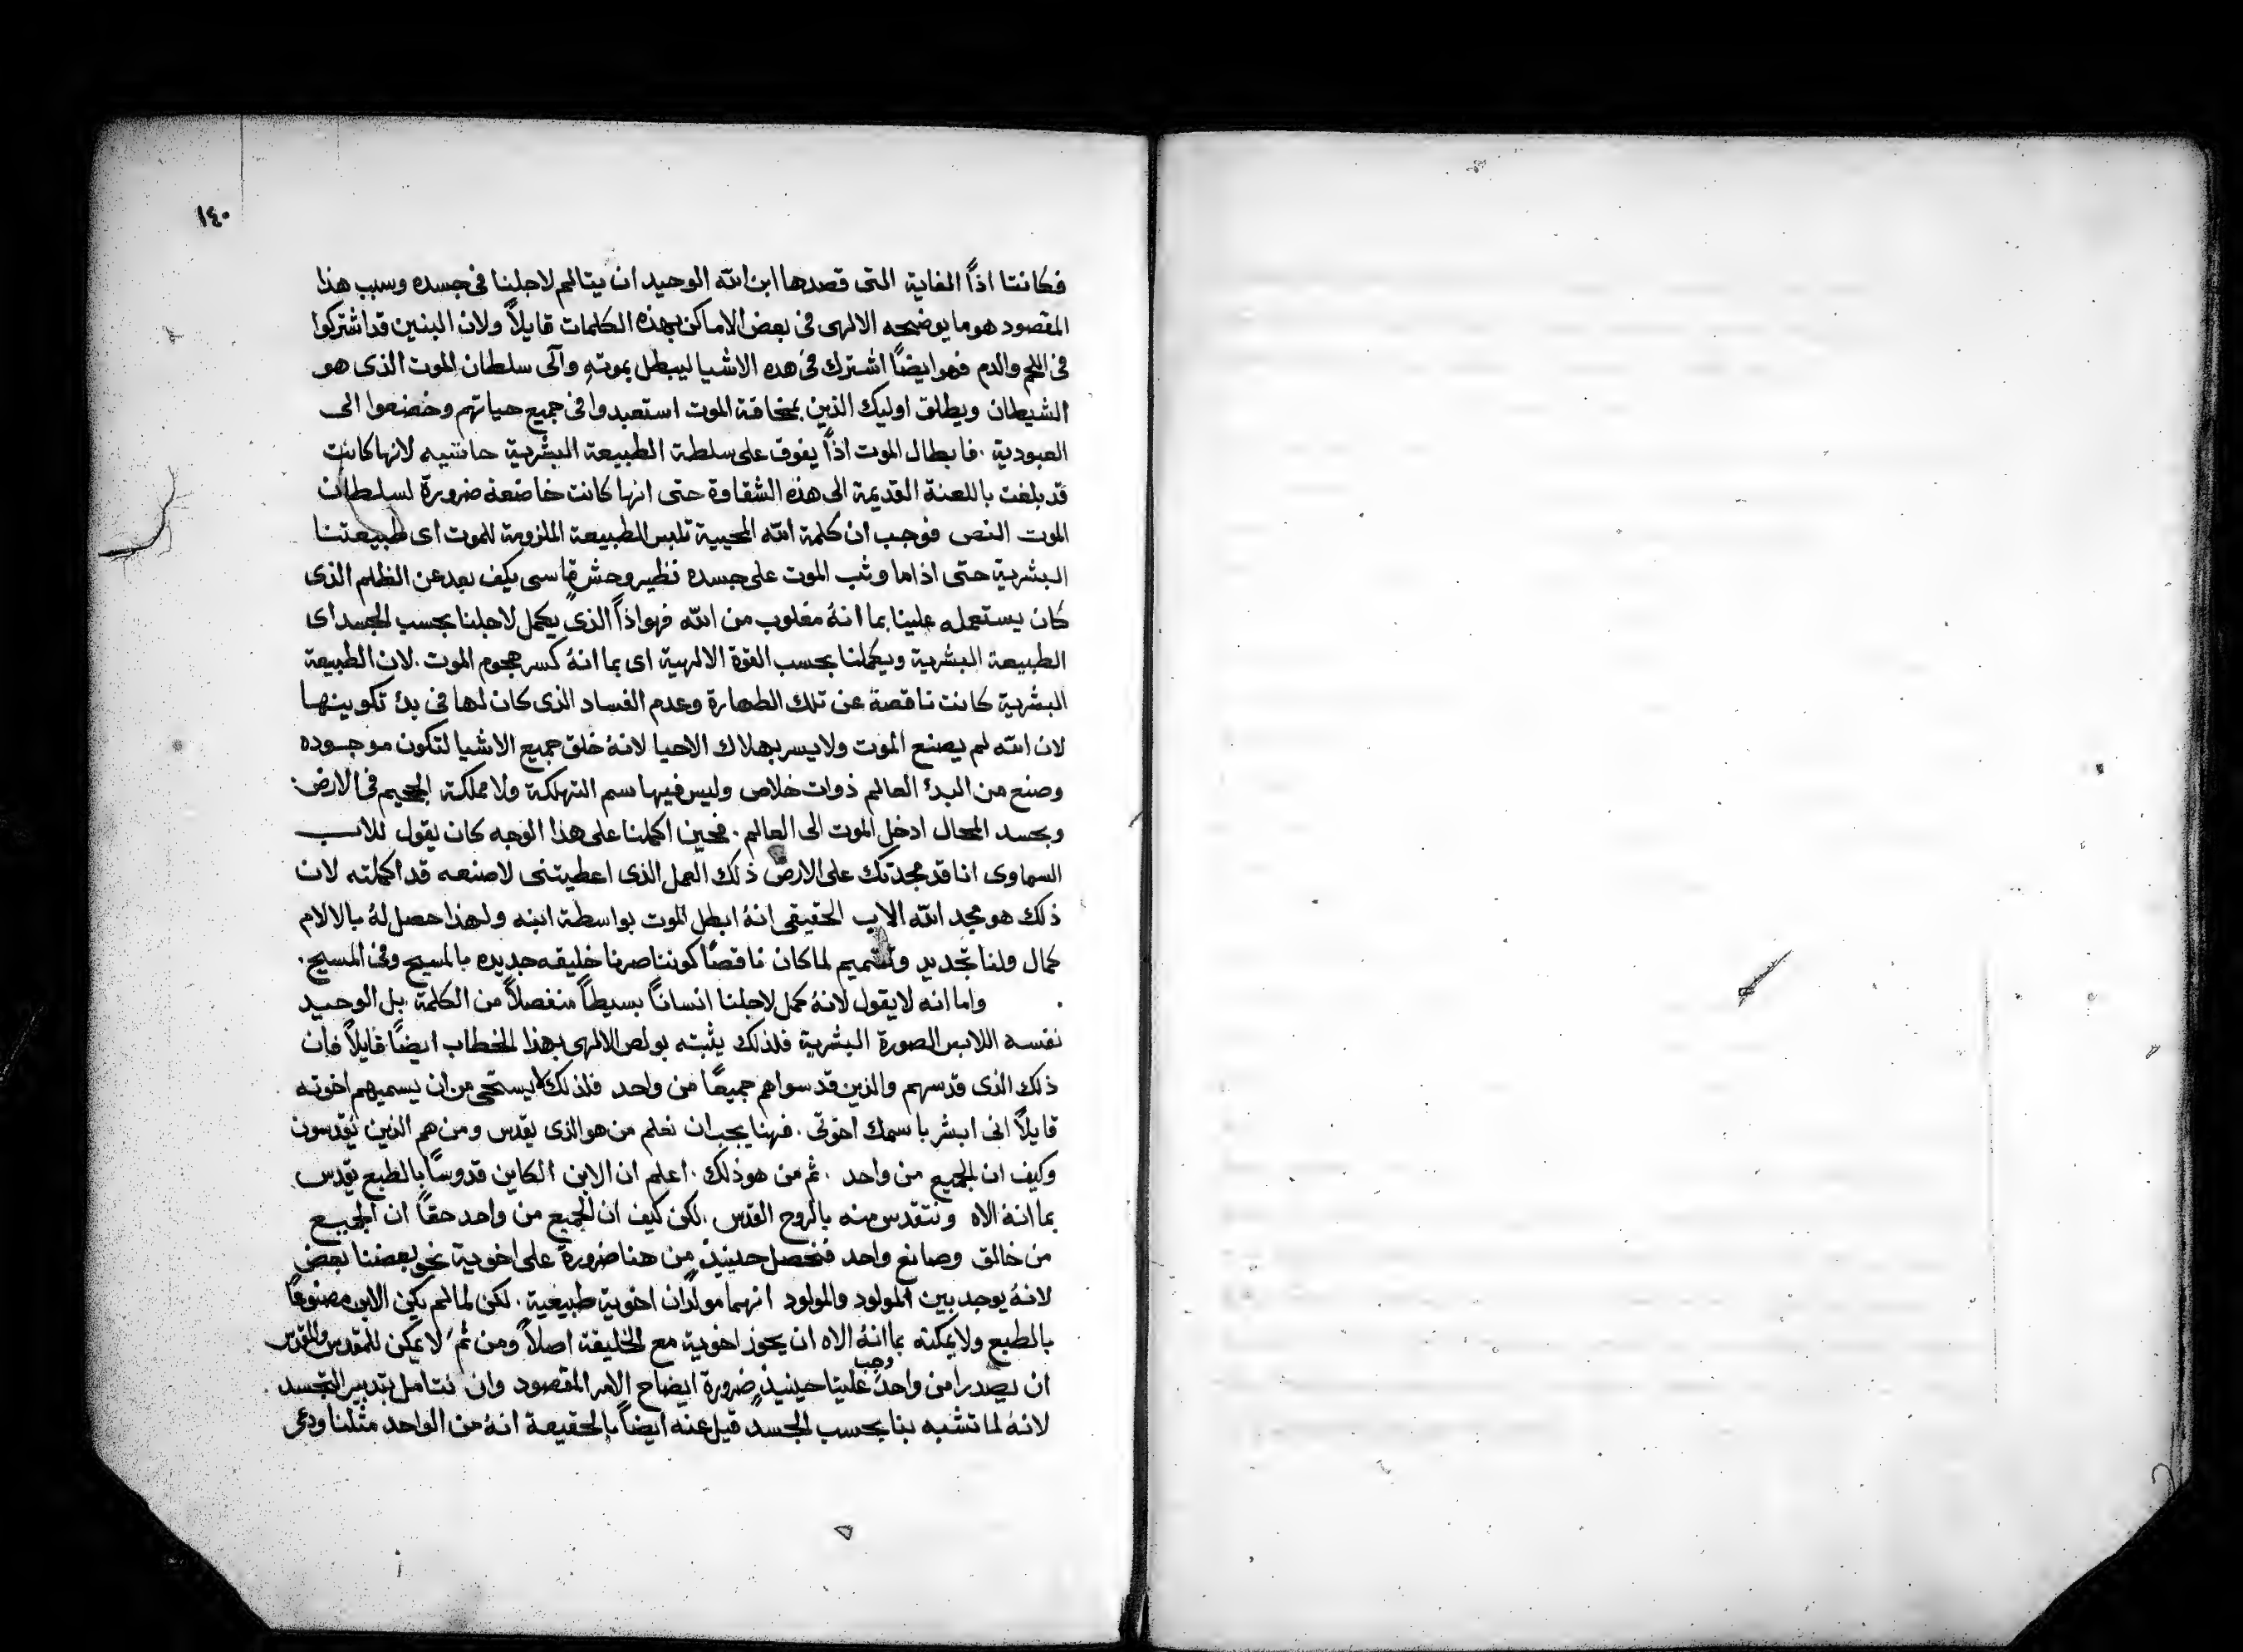 ١٤٠
فكانتا اذًا الغاية التى قصدها ابن الله الوحيد ان يتالم لاجلنا فى جسده وسبب هذا
المقصود هو ما يوضحه الالهى فى بعض الاماكن بهذه الكلمات قايلاً ولان البنين قد اشتركوا
فى اللحم والدم فهو ايضًا اشترك فى هذه الاشيا ليبطل بموتهِ وآلى سلطان الموت الذى هو
الشيطان ويطلق اوليك الذين بمخافة الموت استعبدوا فى جميع حياتهم وخضعوا الى
العبودية . فابطال الموت اذًا يفوق على سلطة الطبيعة البشرية لانها كانت
قد بلغت باللعنة القديمة الى هذه الشقاوة حتى انها كانت خاضعة ضرورة لسلطان
الموت النص فوجب ان كلمة الله المحيية تلبس الطبيعة الملزومة للموت اى طبيعتنا
البشرية حتى اذا ما وثب الموت على جسده نظير وحش قاسى يكف بعد عن الظلم الذى
كان يستعمله علينا بما انهُ مغلوب من الله فهو اذًا الذى يكمل لاجلنا بحسب الجسد اى
الطبيعة البشرية ويكملنا بحسب القوة الالهية اى بما انهُ كسر هجوم الموت . لان الطبيعة
البشرية كانت ناقصة عن تلك الطهارة وعدم الفساد الذى كان لها فى بدئ تكوينها
لان الله لم يصنع الموت ولا يسر بهلاك الاحيا لانهُ خلق جميع الاشيا لتكون موجوده
وصنع من البدئ العالم ذوات خلاص وليس فيها سم التهلكة ولا مملكة الجحيم فى الارض .
وبحسد المحال ادخل الموت الى العالم . فحين اكملنا على هذا الوجه كان يقول للاب
السماوى انا قد مجدتك على الارض ذلك العمل الذى اعطيتنى لاصنعه قد اكملته لان
ذلك هو مجد الله الاب الحقيقى انهُ ابطل الموت بواسطة ابنه ولهذا حصل لهُ بالالام
كمال ولنا تجديد وتتميم لما كان ناقصًا كوننا صرنا خليقه جديده بالمسيح وفى المسيح .
واما انه لا يقول لانهُ كمل لاجلنا انسانًا بسيطًا منفصلاً من الكلمة بل الوحيد
نفسه اللابس الصورة البشرية فلذلك يثبته بولص الالهى بهذا الخطاب ايضًا قايلاً فان
ذلك الذى قدسهم والذين قدسوا هم جميعًا من واحد فلذلك لا يستحى من ان يسميهم اخوته
قايلاً انى ابشر باسمك اخوتى . فهنا يجب ان نعلم من هو الذى يقدس ومن هم الذين يُقدسون
وكيف ان الجميع من واحد . ثم من هو ذلك . اعلم ان الابن الكاين قدوسًا بالطبع يقدس
بما انهُ الاه ونتقدس منه بالروح القدس . لكن كيف ان الجميع من واحد حقًا ان الجميع
من خالق وصانع واحد فنحصل حينيذٍ من هنا ضرورة على اخوية نحو بعضنا بعض
لانهُ يوجد بين المولود والمولود انهما مولدان اخوية طبيعية . لكن لما لم يكن الابن مصنوعًا
بالطبع ولا يمكنه بما انهُ الاه ان يحوز اخوية مع الخليقة اصلاً ومن ثم لا يمكن للمقدس والمقدس
ان يصدرا من واحد وجب علينا حينيذٍ ضرورة ايضاح الامر المقصود وان نتامل بتدبير التجسد .
لانهُ لما تشبه بنا بحسب الجسد قيل عنه ايضًا بالحقيقة انهُ من الواحد مثلنا ودعى